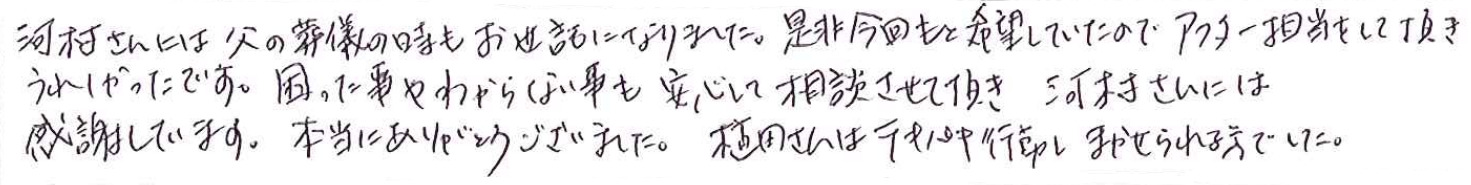 河村さんには父の葬儀の時もお世話になりました。是非今回もと希望していたのでアフター担当をして頂き
うれしかったです。困った事やわからない事も安心して相談させて頂き 河村さんには
感謝しています。本当にありがとうございました。植田さんはテキパキ行動しまかせられる方でした。